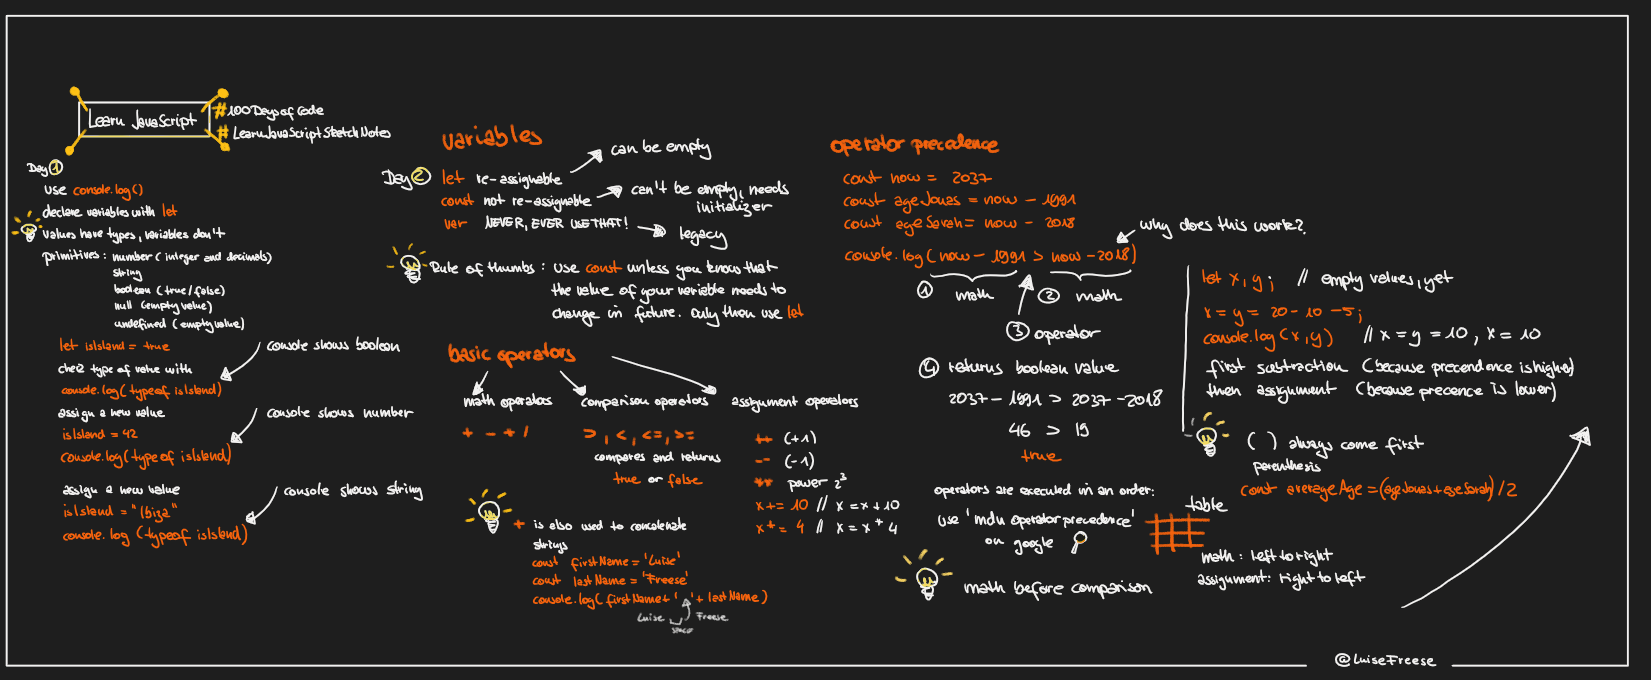 Learn JavaScript
#100DaysofCode
#LearnJavaScriptSketchNotes
Day 1
use console.log()
declare variables with let
values have types, variables don't
primitives: number (integer and decimals)
string
boolean (true/false)
null (empty value)
undefined (empty value)
let isIsland = true
check type of value with
console.log(typeof isIsland)
console shows boolean
assign a new value
isIsland = 42
console.log(typeof isIsland)
console shows number
assign a new value
isIsland = "Ibiza"
console.log (typeof isIsland)
console shows string
variables
Day 2
let re-assignable
can be empty
const not re-assignable
can't be empty, needs
initializer
var NEVER, EVER USE THAT!
legacy
Rule of thumbs: use const unless you know that
the value of your variable needs to
change in future. Only then use let
basic operators
math operators
+ - * /
comparison operators
>, <, <=, >=
compares and returns
true or false
assignment operators
++ (+1)
-- (-1)
** power 2³
x += 10 // x = x + 10
x *= 4 // x = x * 4
+ is also used to concatenate
strings
const firstName = 'Luise'
const lastName = 'Freese'
console.log( firstName + ' ' + lastName )
Luise Freese
space
operator precedence
const now = 2037
const ageJonas = now - 1991
const ageSarah = now - 2018
why does this work?
console.log( now - 1991 > now - 2018)
1 math
2 math
3 operator
4 returns boolean value
2037 - 1991 > 2037 - 2018
46 > 19
true
operators are executed in an order:
use 'mdn operator precedence'
on google
table
math: left to right
assignment: right to left
math before comparison
let x, y; // empty values, yet
x = y = 20 - 10 - 5;
console.log(x, y) // x = y = 10, x = 10
first subtraction (because precendence is higher)
then assignment (because precence is lower)
( ) always come first
parenthesis
const averageAge = (ageJonas + ageSarah) / 2
@LuiseFreese